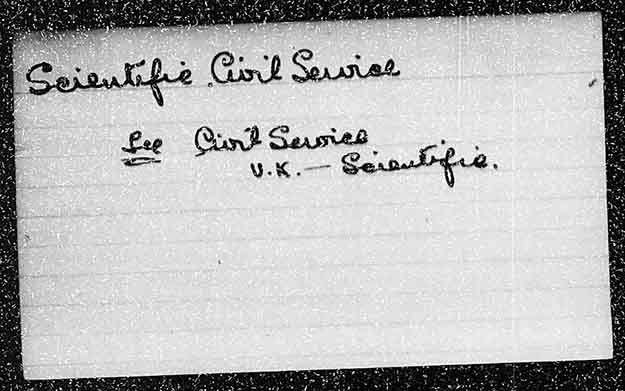 Scientific Civil Service
See Civil Service
U.K. — Scientific.